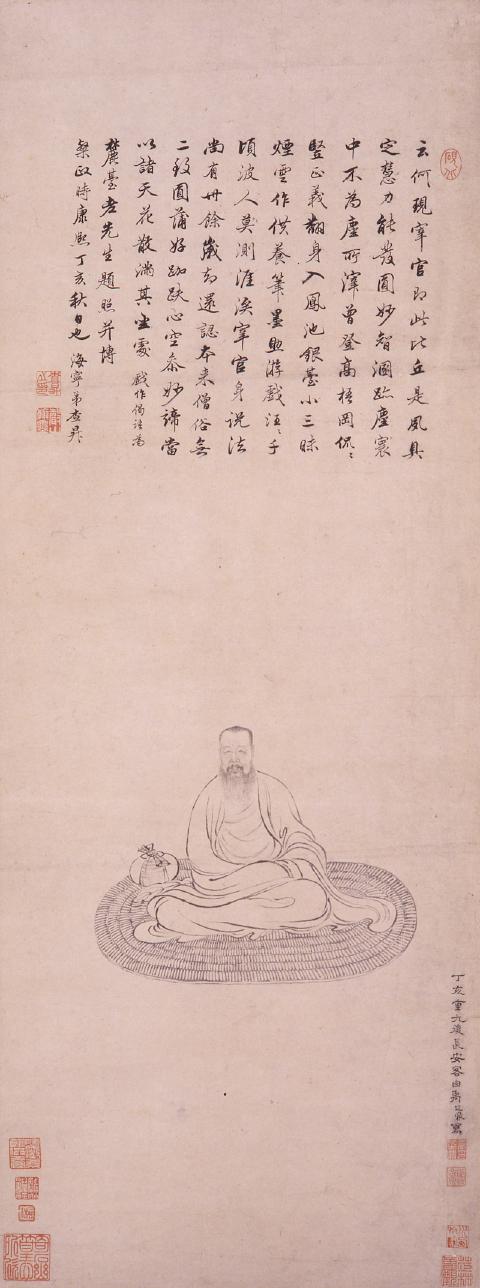 云何現宰官即此比丘是夙具
定慧力能發圓妙智溷跡塵寰
中不為塵所滓曾登高梧岡侃〻
豎正義翻身入鳳池銀臺小三昧
煙雲作供養筆墨恣游戲汪〻千
頃波人莫測涯涘宰官身說法
尚有卅餘歲却還認本来僧俗無
二致圓蒲好跏趺心空參妙諦當
以諸天花散滿其坐處 戲作偈語為
麓臺老先生題照并博
粲政時康熙丁亥秋日也 海寧弟查昇
丁亥重九後長安客禹之鼎寫